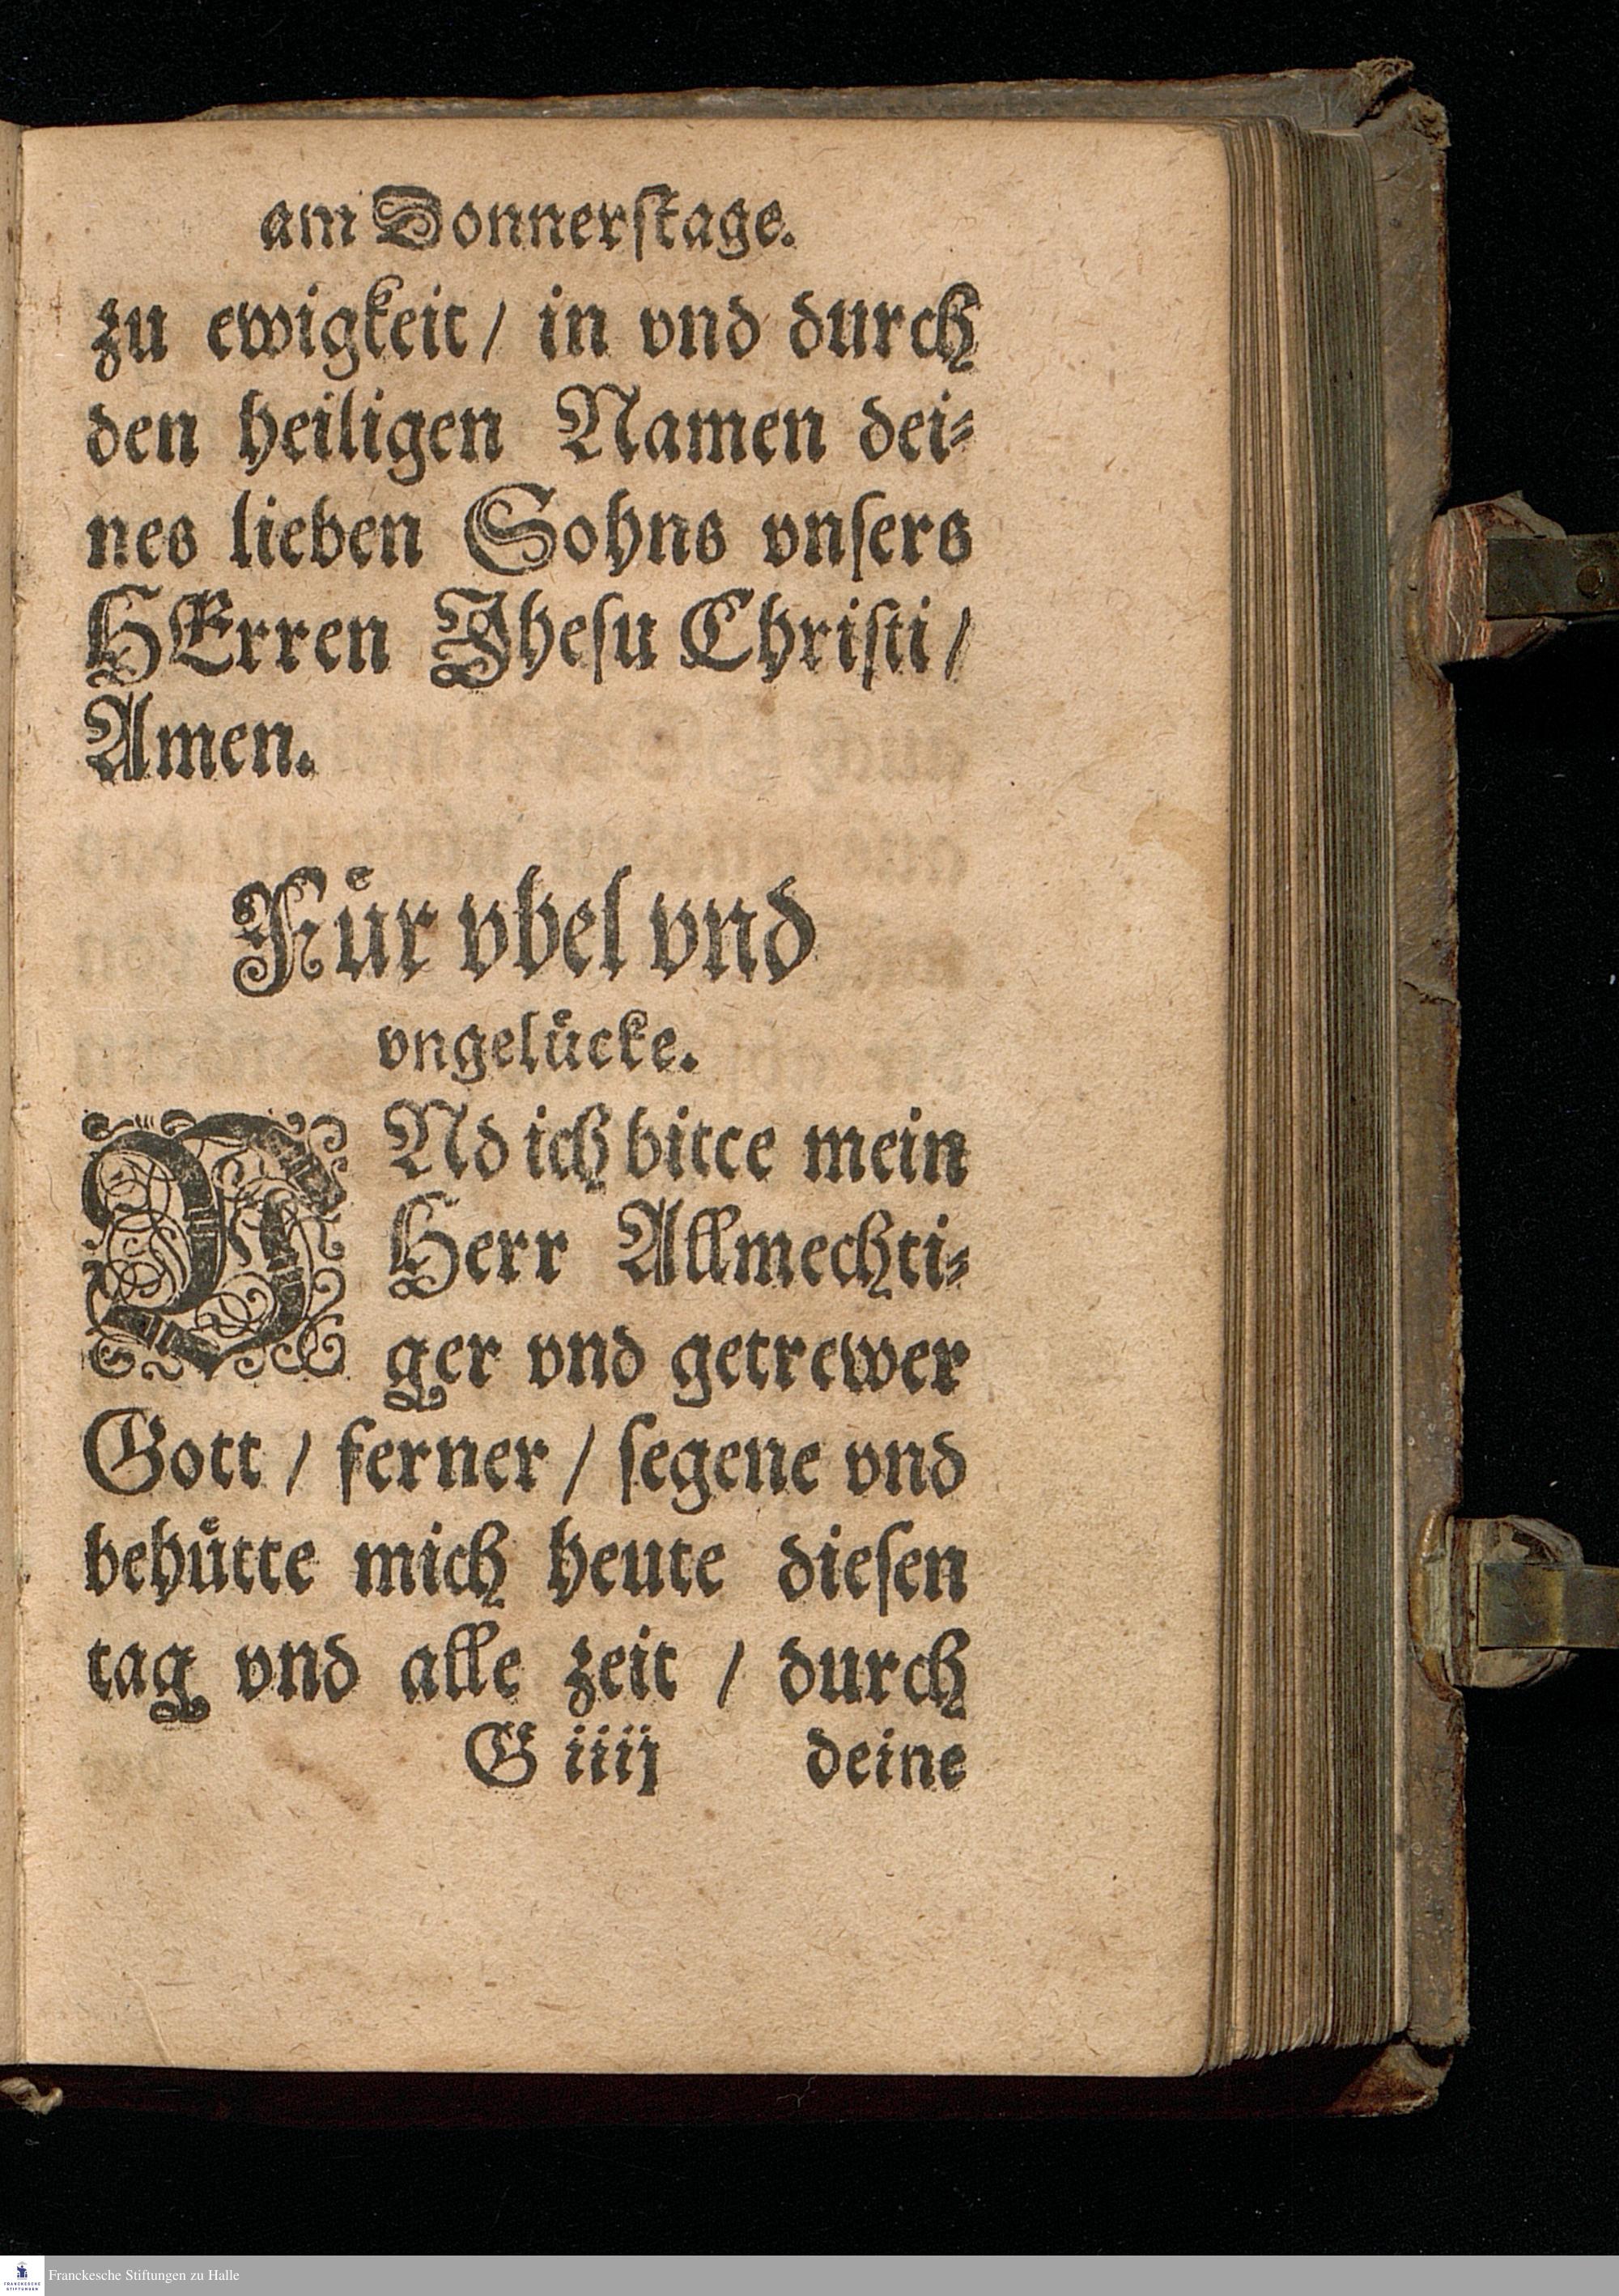 am Donnerſtage.
zu ewigkeit/ in vnd durch
den heiligen Namen dei⸗
nes lieben Sohns vnſers
HErren Jheſu Chriſti/
Amen.
Fuͤr vbel vnd
vngeluͤcke.
VNd ich bitte mein
Herr Allmechti⸗
ger vnd getrewer
Gott / ferner / ſegene vnd
behuͤtte mich heute dieſen
tag vnd alle zeit / durch
G iiij deine
FRANCKESCHE STIFTUNGEN
Franckesche Stiftungen zu Halle